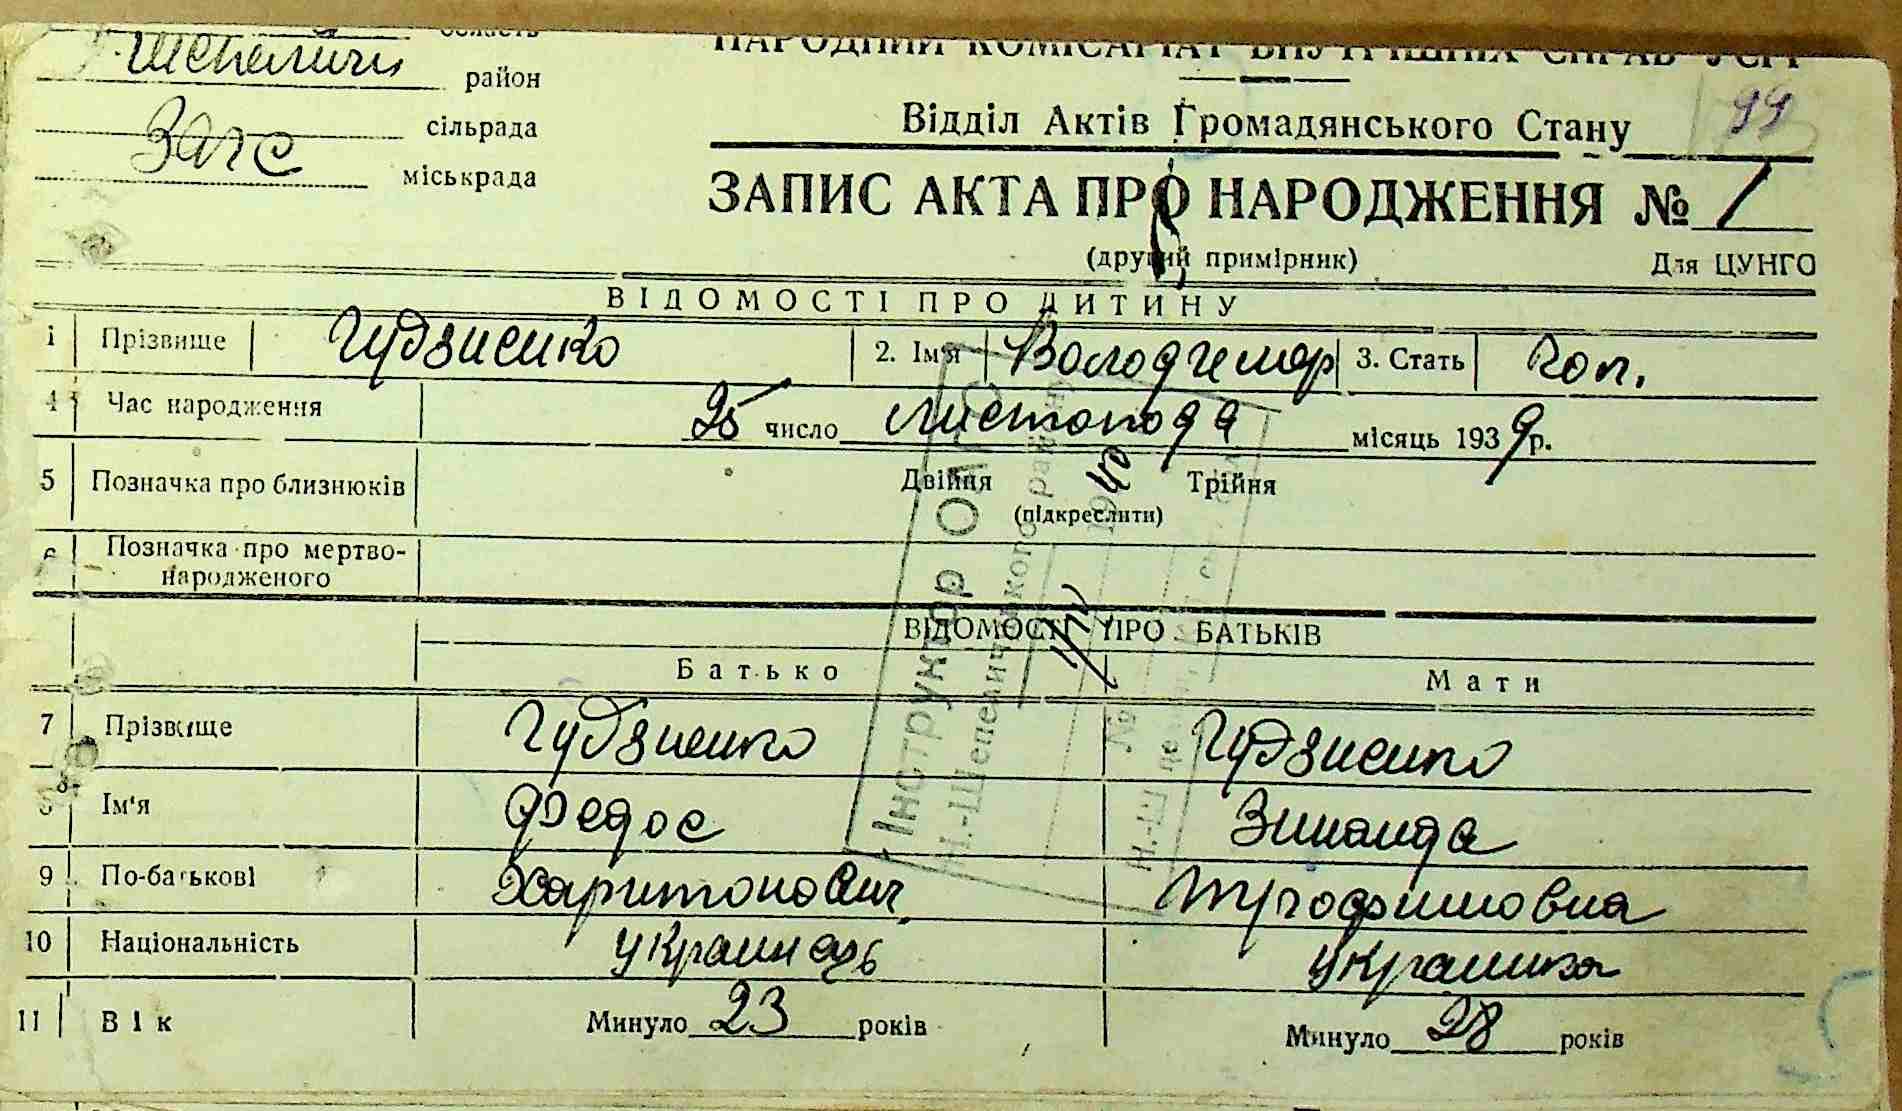 область
Н. Шепеличи район
сільрада
Загс міськрада
НАРОДНИЙ КОМІСАРІАТ ВНУТРІШНІХ СПРАВ УСРР
Відділ Актів Громадянського Стану
99
ЗАПИС АКТА ПРО НАРОДЖЕННЯ № 1
(другий примірник) Для ЦУНГО
ВІДОМОСТІ ПРО ДИТИНУ
1 Прізвище Гудзиенко 2. Ім'я Волод
имир 3. Стать чол.
4 Час народження 25 число листопада місяць 1939 р.
5 Позначка про близнюків Двійня Трійня
(підкреслити)
6 Позначка про мертво-
народженого
ВІДОМОСТІ ПРО БАТЬКІВ
Батько Мати
7 Прізвище Гудзиенко Гудзиенко
8 Ім'я Федос Зинаида
9 По-батькові Харитонович Трофимовна
10 Національність украинець украинка
11 Вік Минуло 23 років Минуло 28 років
Інструктор ОАГС
Н.-Шепелицького району
1940
№